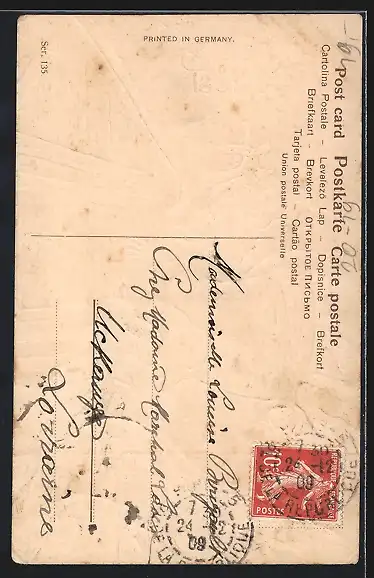 Ser. 135
PRINTED IN GERMANY.
Post card Postkarte Carte postale
Cartolina Postale – Levelező Lap – Dopisnice – Brefkort
Briefkaart – Brevkort – ОТКРЫТОЕ ПИСЬМО
Tarjeta postal – Cartão postal
Union postale Universelle
Mademoiselle Louise
Chez Madame
Uckange
Lorraine
10
POSTES
24 12
09